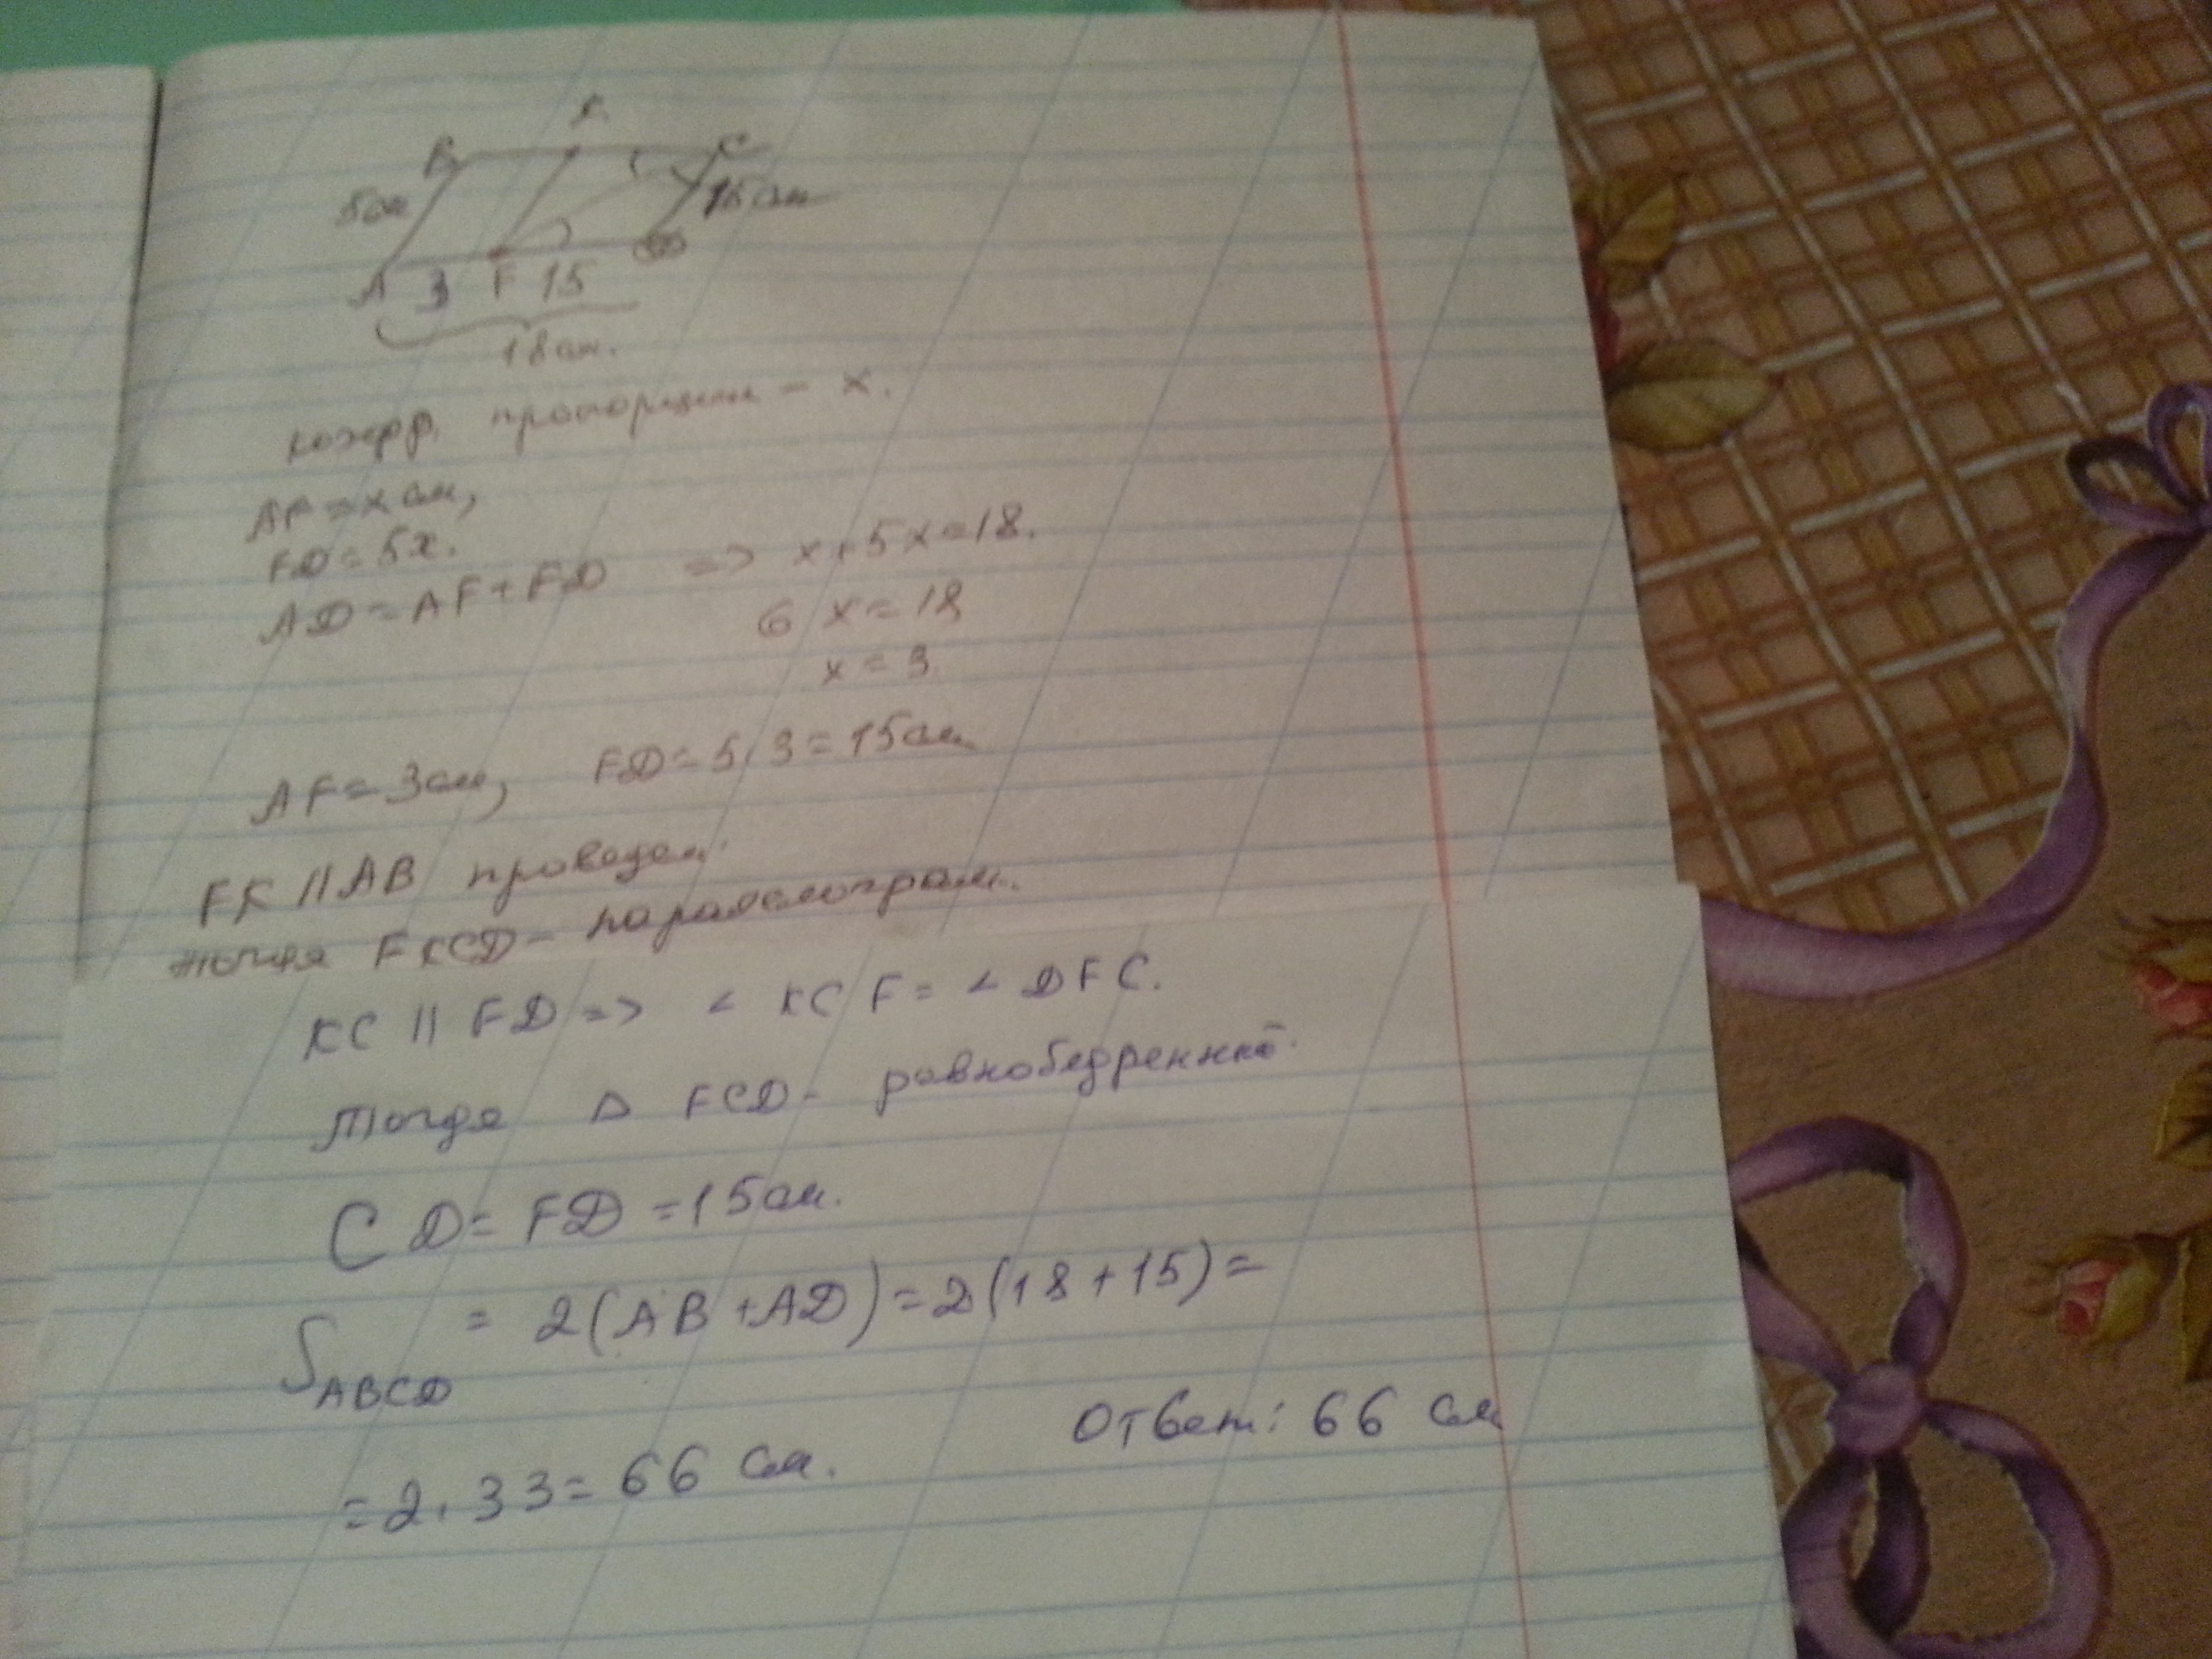 K
B C
5см 15см
A 3 F 15
18см.
коэфф. пропорции - x.
AF = x см,
FD = 5x.
AD = AF + FD => x + 5x = 18.
6x = 18
x = 3.
AF = 3см, FD = 5·3 = 15см
FK || AB проведем.
тогда FKCD - параллелограм.
KC || FD => < KCF = < DFC.
Тогда Δ FCD - равнобедренный.
CD = FD = 15см.
S ABCD = 2(AB + AD) = 2(18 + 15) =
= 2·33 = 66 см. Ответ: 66 см